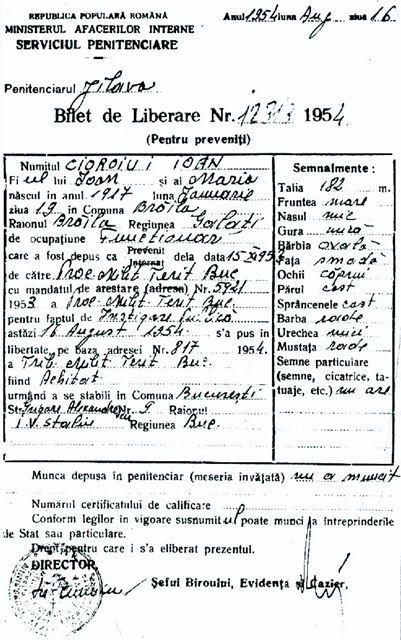 REPUBLICA POPULARĂ ROMÂNĂ
MINISTERUL AFACERILOR INTERNE
SERVICIUL PENITENCIARE
Anul 1954 luna Aug ziua 16
Penitenciarul Jilava
Bilet de Liberare Nr. 1954
(Pentru preveniți)
Numitul CIOROIU I IOAN
Fi ul lui Ioan și al Maria
născut în anul 1917 luna Januarie
ziua 19 în Comuna Brăila
Raionul Brăila Regiunea Galați
de ocupațiune Funcționar
care a fost depus ca Prevenit Internat dela data 15 XI 1953
de către Proc. Milit. Terit Buc
cu mandatul de arestare (adresa) No 5921
1953 a Proc. Milit. Terit Buc.
pentru faptul de Instigare
astăzi 16 August 1954. s'a pus în
libertate, pe baza adresei Nr. 817 1954.
a Trib Milit Terit Buc.
fiind Achitat
urmând a se stabili în Comuna București
Str. Grigore Alexandrescu Nr. 9 Raionul
I. V. Stalin Regiunea Buc.
Semnalmente:
Talia 182 m.
Fruntea mare
Nasul mic
Gura
Bărbia ovală
Fața smadă
Ochii căprui
Părul cast
Sprâncenele cast
Barba rade
Urechea mici
Mustața rade
Semne particulare
(semne, cicatrice, ta-
tuaje, etc.) nu are
Munca depusă în penitenciar (meseria învățată) nu a muncit
Numărul certificatului de calificare
Conform legilor în vigoare susnumit ul poate munci la întreprinderile
de Stat sau particulare.
Drept pentru care i s'a eliberat prezentul.
DIRECTOR,
Șeful Biroului, Evidența și Cazier,